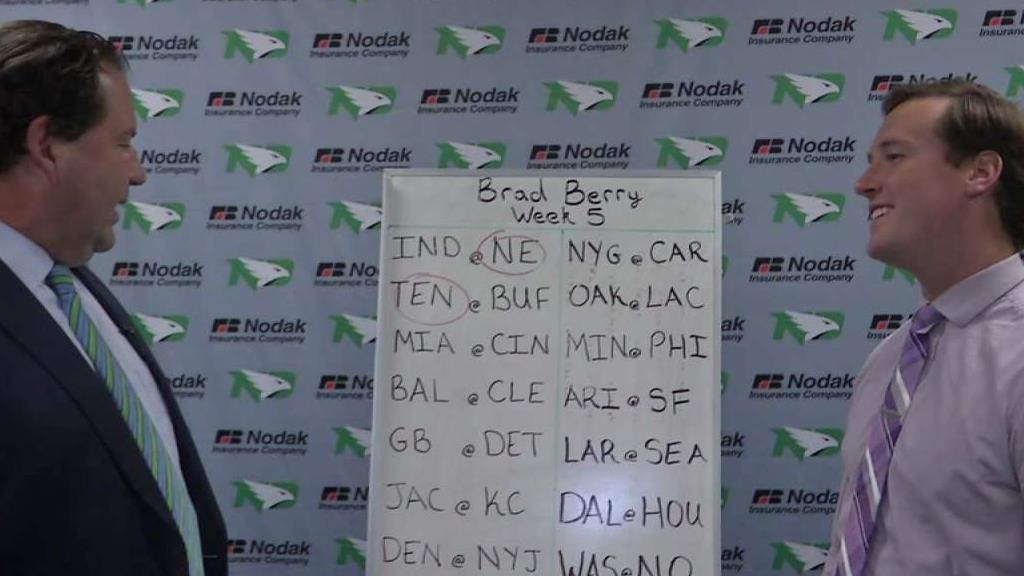 Brad Berry
Week 5
IND @ NE
TEN @ BUF
MIA @ CIN
BAL @ CLE
GB @ DET
JAC @ KC
DEN @ NYJ
NYG @ CAR
OAK @ LAC
MIN @ PHI
ARI @ SF
LAR @ SEA
DAL @ HOU
WAS @ NO
Nodak
Insurance Company